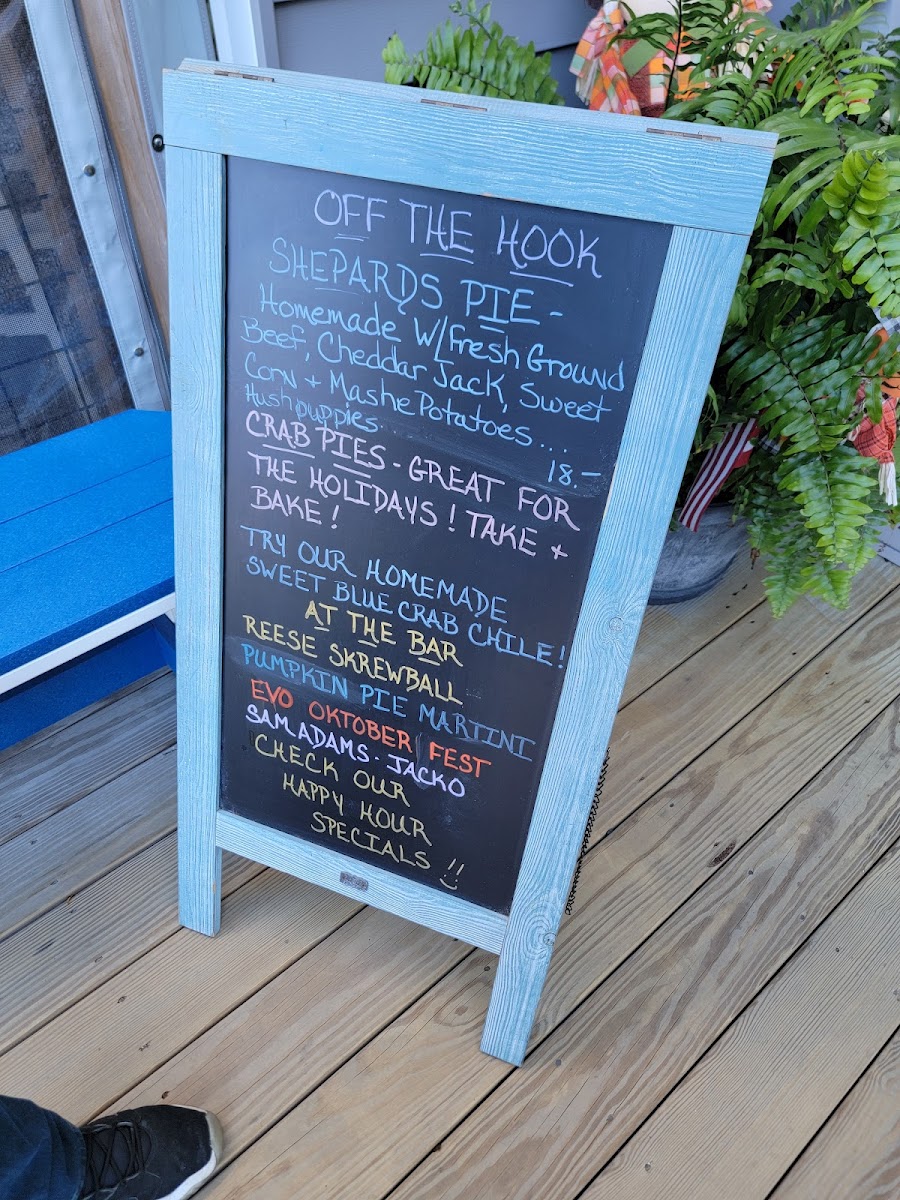 OFF THE HOOK
SHEPARDS PIE -
Homemade W/Fresh Ground
Beef, Cheddar Jack, Sweet
Corn + Mashe Potatoes...
Hushpuppies... 18.-
CRAB PIES - GREAT FOR
THE HOLIDAYS! TAKE +
BAKE!
TRY OUR HOMEMADE
SWEET BLUE CRAB CHILE!
AT THE BAR
REESE SKREWBALL
PUMPKIN PIE MARTINI
EVO OKTOBER FEST
SAM ADAMS · JACKO
CHECK OUR
HAPPY HOUR
SPECIALS !!